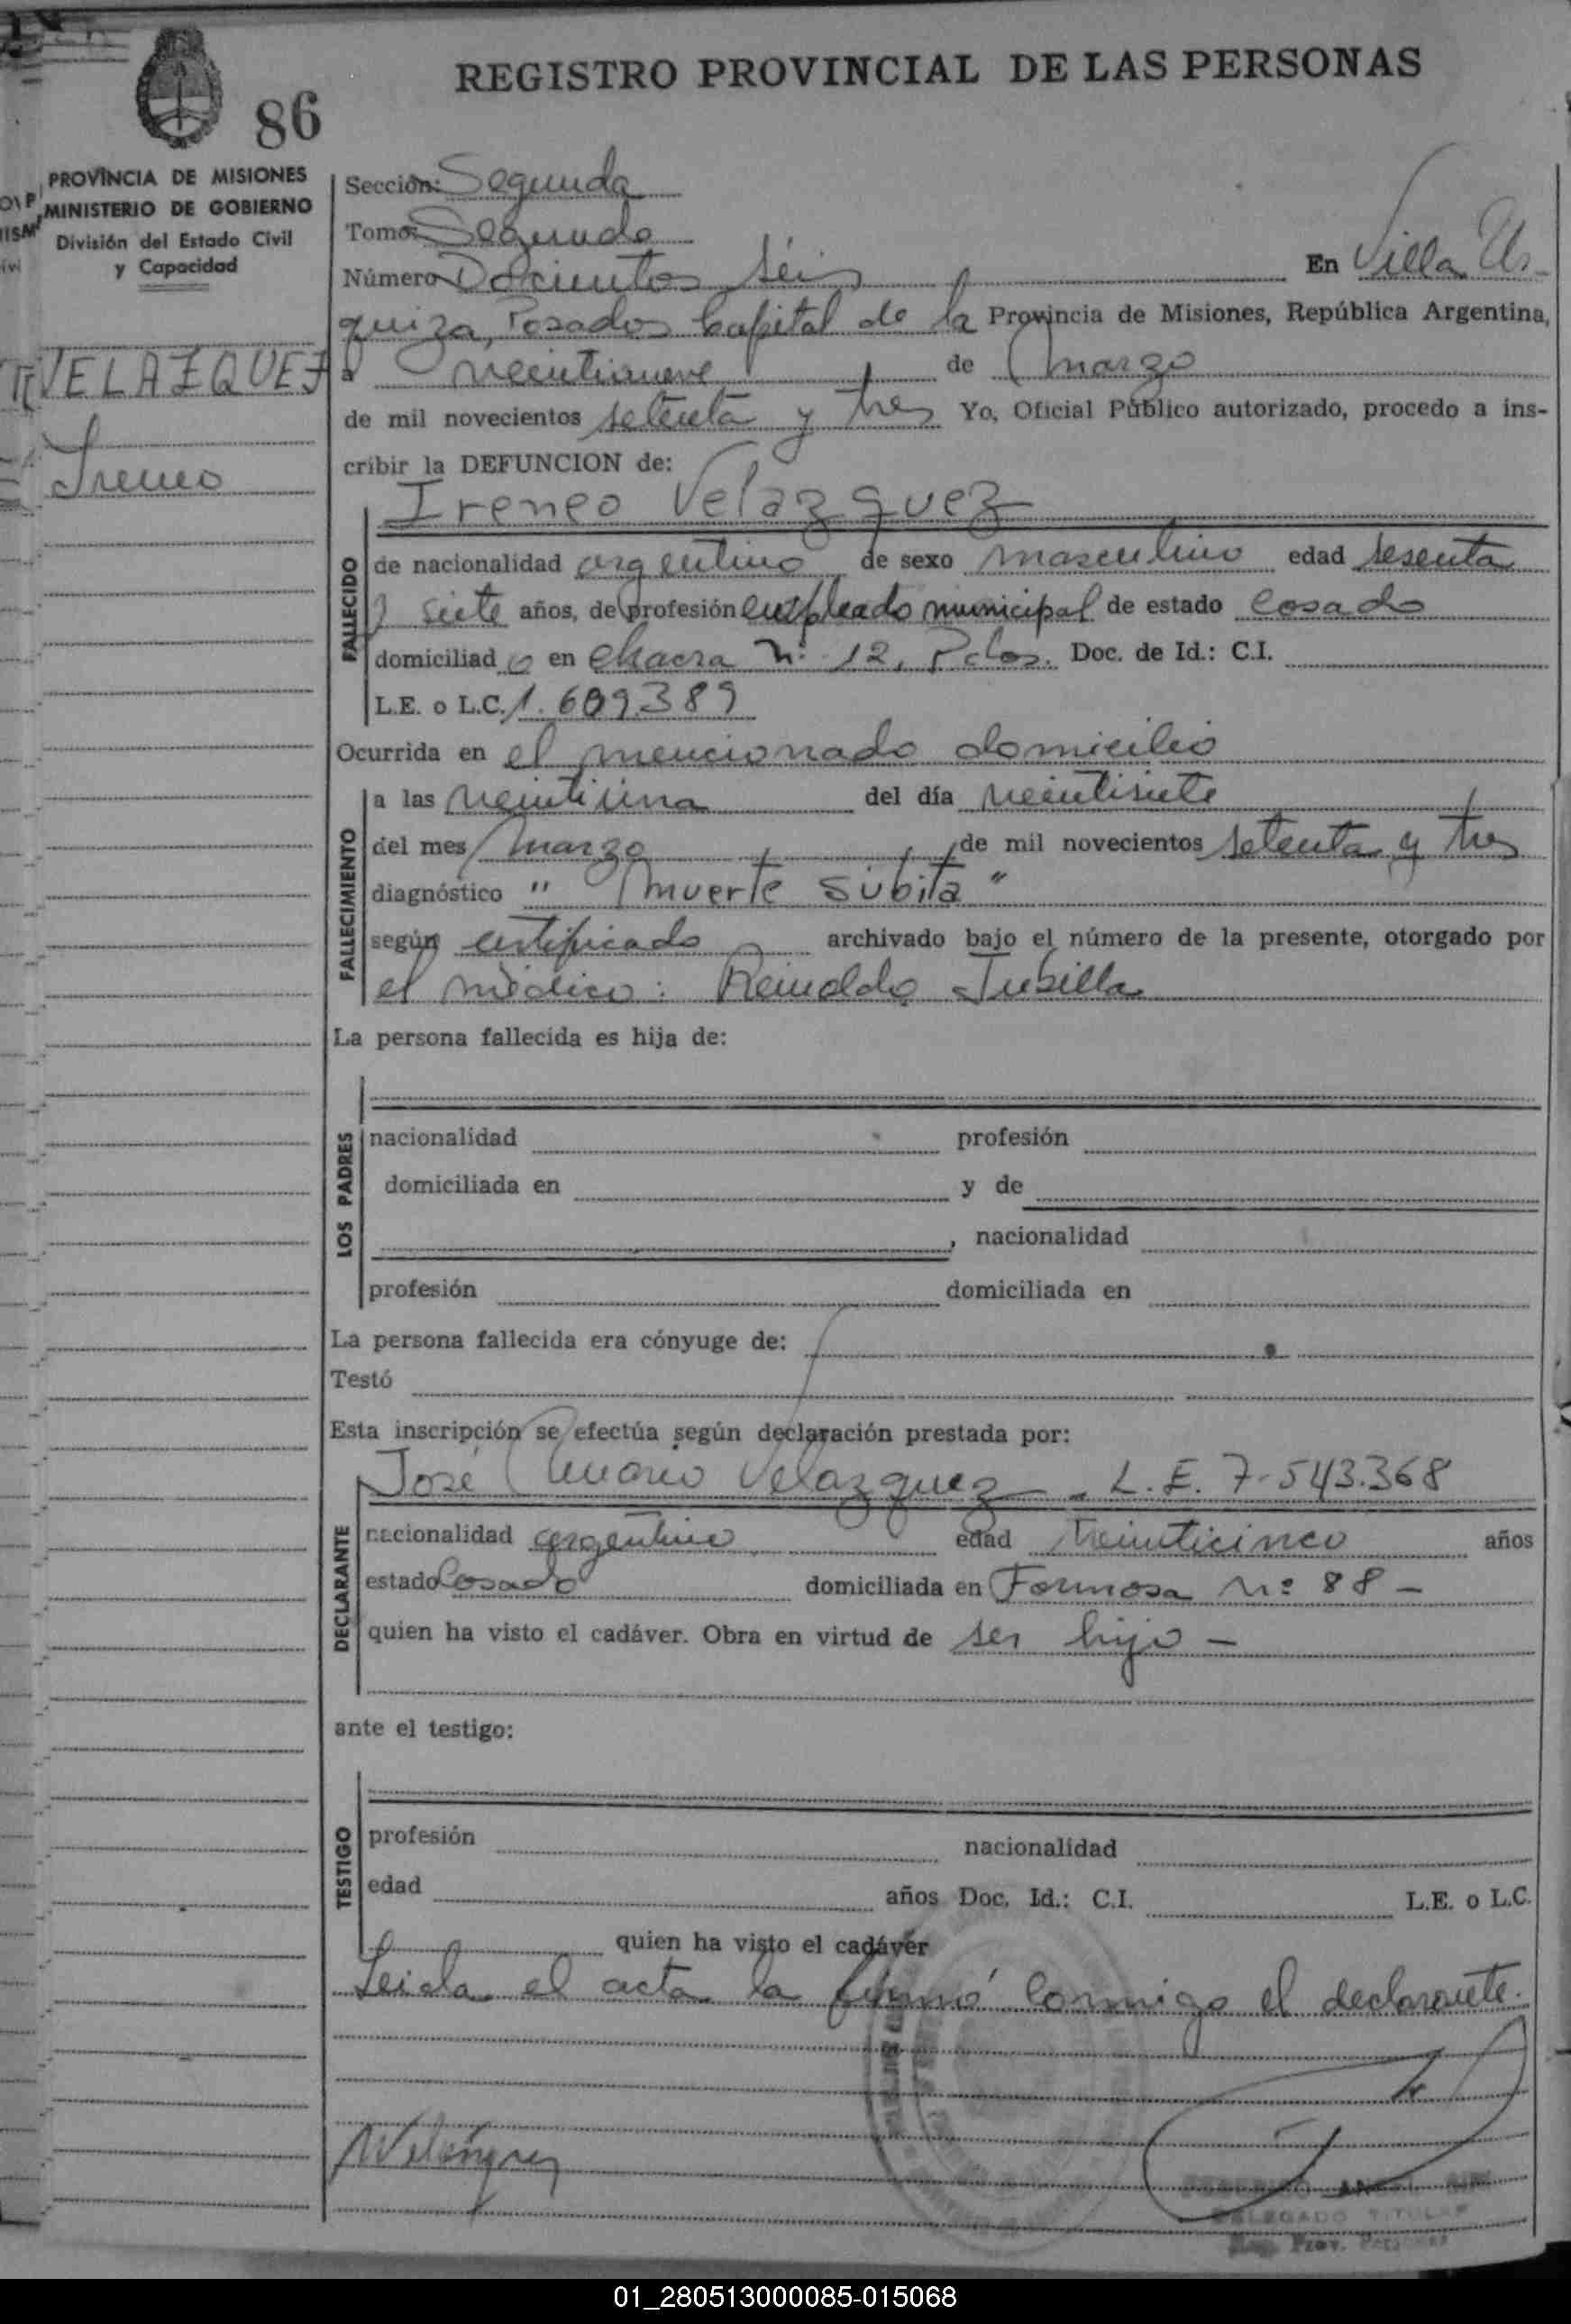 REGISTRO PROVINCIAL DE LAS PERSONAS
86
PROVINCIA DE MISIONES
MINISTERIO DE GOBIERNO
División del Estado Civil
y Capacidad
VELAZQUEZ
Ireneo
Sección: Segunda
Tomo: Segundo
Número Docientos seis En Villa Ur-
quiza, Posadas Capital de la Provincia de Misiones, República Argentina,
a veintinueve de marzo
de mil novecientos setenta y tres Yo, Oficial Público autorizado, procedo a ins-
cribir la DEFUNCION de:
Ireneo Velazquez
FALLECIDO
de nacionalidad argentino de sexo masculino edad sesenta
y siete años, de profesión empleado municipal de estado casado
domiciliad o en chacra nº 12, Pdas. Doc. de Id.: C.I.
L.E. o L.C. 1.609.389
Ocurrida en el mencionado domicilio
FALLECIMIENTO
a las veintiuna del día veintisiete
del mes marzo de mil novecientos setenta y tres
diagnóstico " muerte súbita "
según certificado archivado bajo el número de la presente, otorgado por
el médico: Reinaldo
La persona fallecida es hija de:
LOS PADRES
nacionalidad profesión
domiciliada en y de
, nacionalidad
profesión domiciliada en
La persona fallecida era cónyuge de:
Testó
Esta inscripción se efectúa según declaración prestada por:
José Velazquez - L.E. 7.543.368
DECLARANTE
nacionalidad argentino edad veinticinco años
estado Casado domiciliada en Formosa Nº 88 -
quien ha visto el cadáver. Obra en virtud de ser hijo -
ante el testigo:
TESTIGO
profesión nacionalidad
edad años Doc. Id.: C.I. L.E. o L.C.
quien ha visto el cadáver
Leida el acta la firmó conmigo el declarante.
DELEGADO TITULAR
Reg. Prov. Personas
01_280513000085-015068